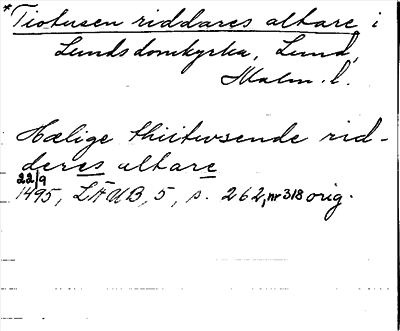 *Tiotusen riddares altare i
Lunds domkyrka, Lund,
Malm. l.
Hælige thiitwsende rid-
deres altare
22/9
1495, LÄUB, 5, s. 262, nr 318 orig.